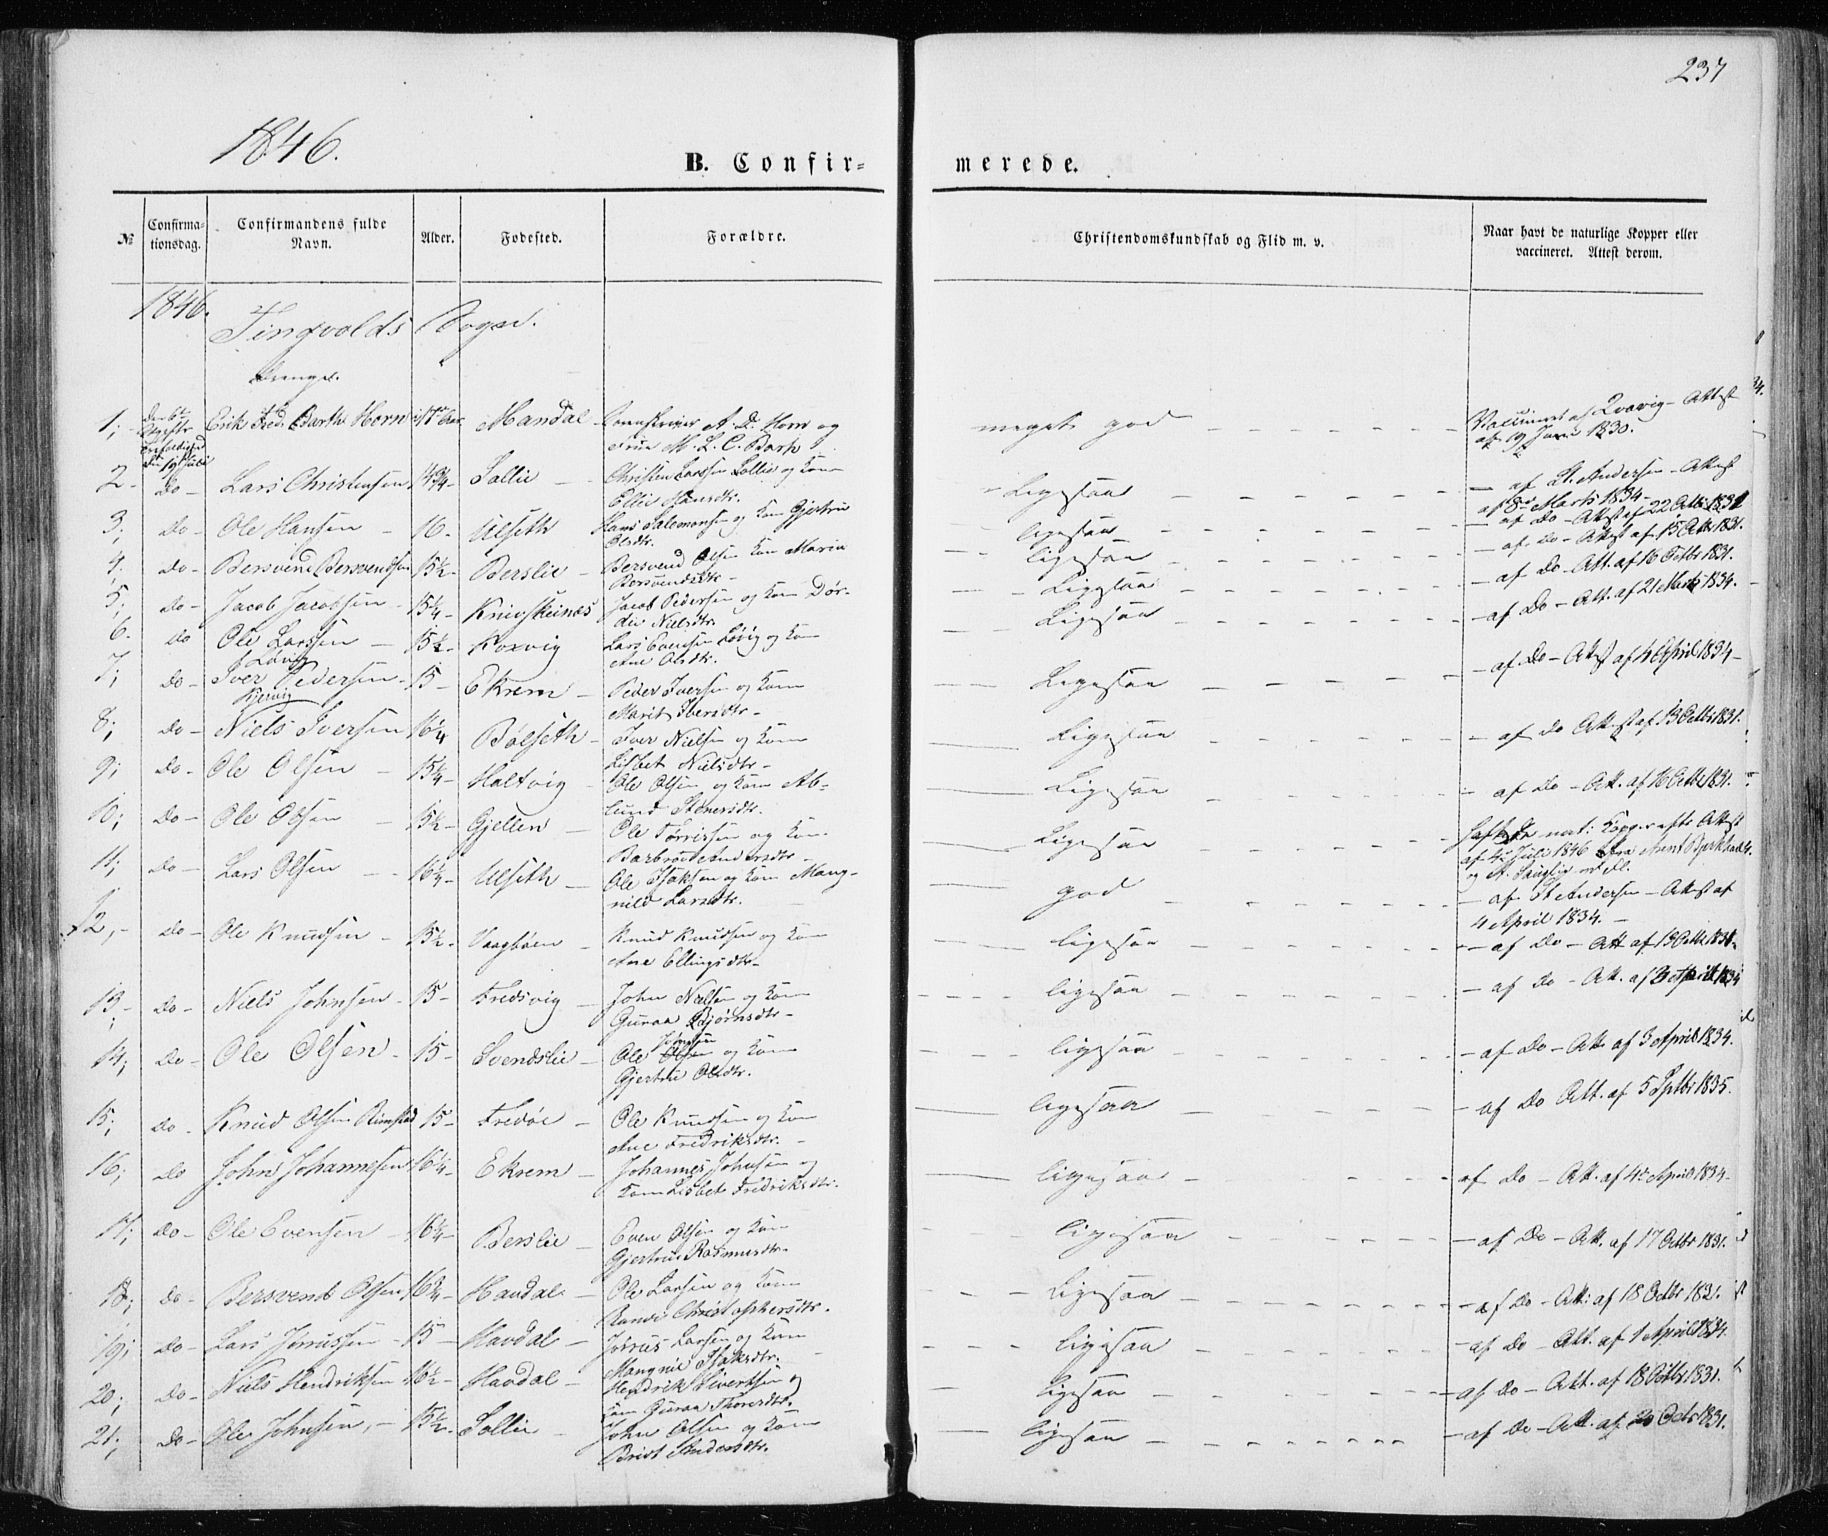 237
1846.
B. Confirmerede.
№ Confirmationsdag. Confirmandens fulde Navn. Alder. Fødested. Forældre. Christendomskundskab og Flid m. v. Naar havt de naturlige Kopper eller vaccineret. Attest derom.
1846. Tingvolds Sogn.
Drenge.
1; Erik Fred. Barth Horn 17 Aar Mandal A. D. Horn og meget god Vaccineret af Qvavig - Attest
Frue M. L. C. Barth af 19 Juni 1830.
den 19 Juli
2 - Do - Lars Christensen 14¾ - Sollie - Christen Larssen Sollie og Kone Ligesaa - af St. Andersen - Attest
Ellie Hansdtr. af 8de Marts 1834 -
3, do - Ole Hansen - 16 - Ulseth - Hans Salomonsen og Kone Gjertru ligesaa - af Do - Attest af 22 Octbr 1831
Olsdtr.
4; do - Bersvend Bersvendsen 15½ - Berslie - Bersvend Olsen Kone Maria ligesaa - af do - Attest af 15 Octbr 1831.
Bersvendsdtr -
5; do - Jacob Jacobsen - 15¼ - Knivskeinæs Jacob Pedersen og Kone Dør- Ligesaa - af Do - Att. af 16 Octbr 1831.
die Nielsdtr.
6. do Ole Larssen - 15½ - Koxvig Lars Evensen Løvig og Kone Ligesaa - af Do - Att. af 21 Marts 1834.
Løvig Ane Olsdtr.
7; do - Iver Pedersen - 15 - Ekrem - Peder Iversen og Kone Ligesaa - af Do - Attest af 4 April 1834 -
Kjervig Marit Iversdtr -
8; do - Niels Iversen 16¼ Bølseth - Iver Nielsen og Kone Ligesaa - af do Attest af 13 Octbr 1831.
Lisbet Nielsdtr -
9; do - Ole Olsen - 15¼ - Holtvig - Ole Olsen og Kone Ab- Ligesaa - af Do - Att. af 16 Octbr 1831.
lund Stenersdtr.
10; do - Ole Olsen - 15½ - Gjellen - Ole Tørrissen og Kone Ligesaa Havt de nat: Kopper efter Attest
Barbroe Andersdtr - af 4de Juli 1846 fra Arent Bjerkstad
og A.
11; do - Lars Olsen - 16¼ - Ulseth - Ole Isaksen og Kone Mang- god - af St Andersen - Attest af
nild Larsdtr. 4 April 1834. -
12, - do - Ole Knudsen - 15½ - Vaagbøen - Knud Knudsen og Kone ligesaa - af Do - Att. af 13 Octbr 1831.
Ane Ellingsdtr -
13; - do - Niels Johnsen - 15 - Fredsvig - John Nielsen og Kone ligesaa - af Do - Att. af 3 April 1834
Guraa Bjørnsdtr -
14; do - Ole Olsen - 15 - Svendslie - Ole Olsen og Kone ligesaa - af Do - Att. af 3 April 1834.
Gjertrue Olsdtr.
15; do - Knud Olsen Rimstad 15 - Fredøe - Ole Knudsen og Kone ligesaa - af Do Att. af 5 Sptbr 1835.
Ane Fredriksdtr. -
16; do John Johannesen 16¼ - Ekrem - Johannes Johnsen og ligesaa - af Do - Att. af 4de April 1834.
Kone Lisbet Fredriksdtr.
17; do - Ole Evensen - 16¼ - Berslie - Even Olsen og Kone ligesaa - af Do - Att. af 17 Octbr 1831.
Gjertrue Rasmusdtr -
18; do - Bersvend Olsen 16¾ - Havdal - Ole Larsen og Kone Ligesaa - af Do - Att: af 18 Octbr 1831.
Randi Christophersdtr.
19; do - Lars Jørrussen - 15 - Havdal - Jørrus Larsen og Kone ligesaa - af do - Att. af 1 April 1834.
Mangnil Isaksdtr.
20; do - Niels Hendriksen 16½ - Havdal - Hendrik Sivertsen og ligesaa - af do - Att. af 18 Octbr 1831.
Kone Guraa Thoresdtr.
21; do - Ole Johnsen, - 15½ - Sollie - John Olsen og Kone ligesaa - af Do - Att. af 20 Octbr 1831.
Brit Andersdtr.